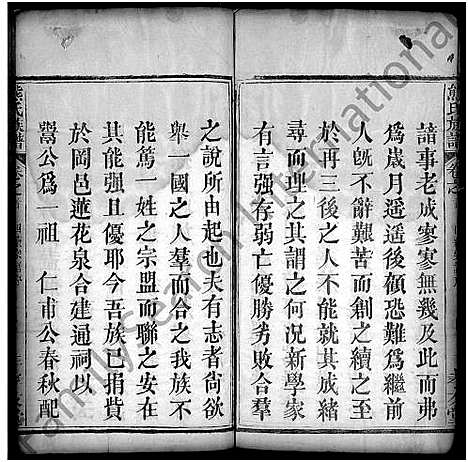 諳事老成寥寥無幾及此而弗
爲歲月遥遥後顧恐難爲繼前
人旣不辭艱苦而創之續之至
於再三後之人不能就其成緒
尋而理之其謂之何况新學家
有言强存弱亡優勝劣敗合羣
之說所由起也夫有志者尙欲
舉一國之人羣而合之我族不
能篤一姓之宗盟而聯之安在
其能强且優耶今吾族已捐貲
於岡邑蓮花泉合建通祠以
鬻公爲一祖 仁甫公春秋配
熊氏族譜
熊氏族譜
FamilySearch International